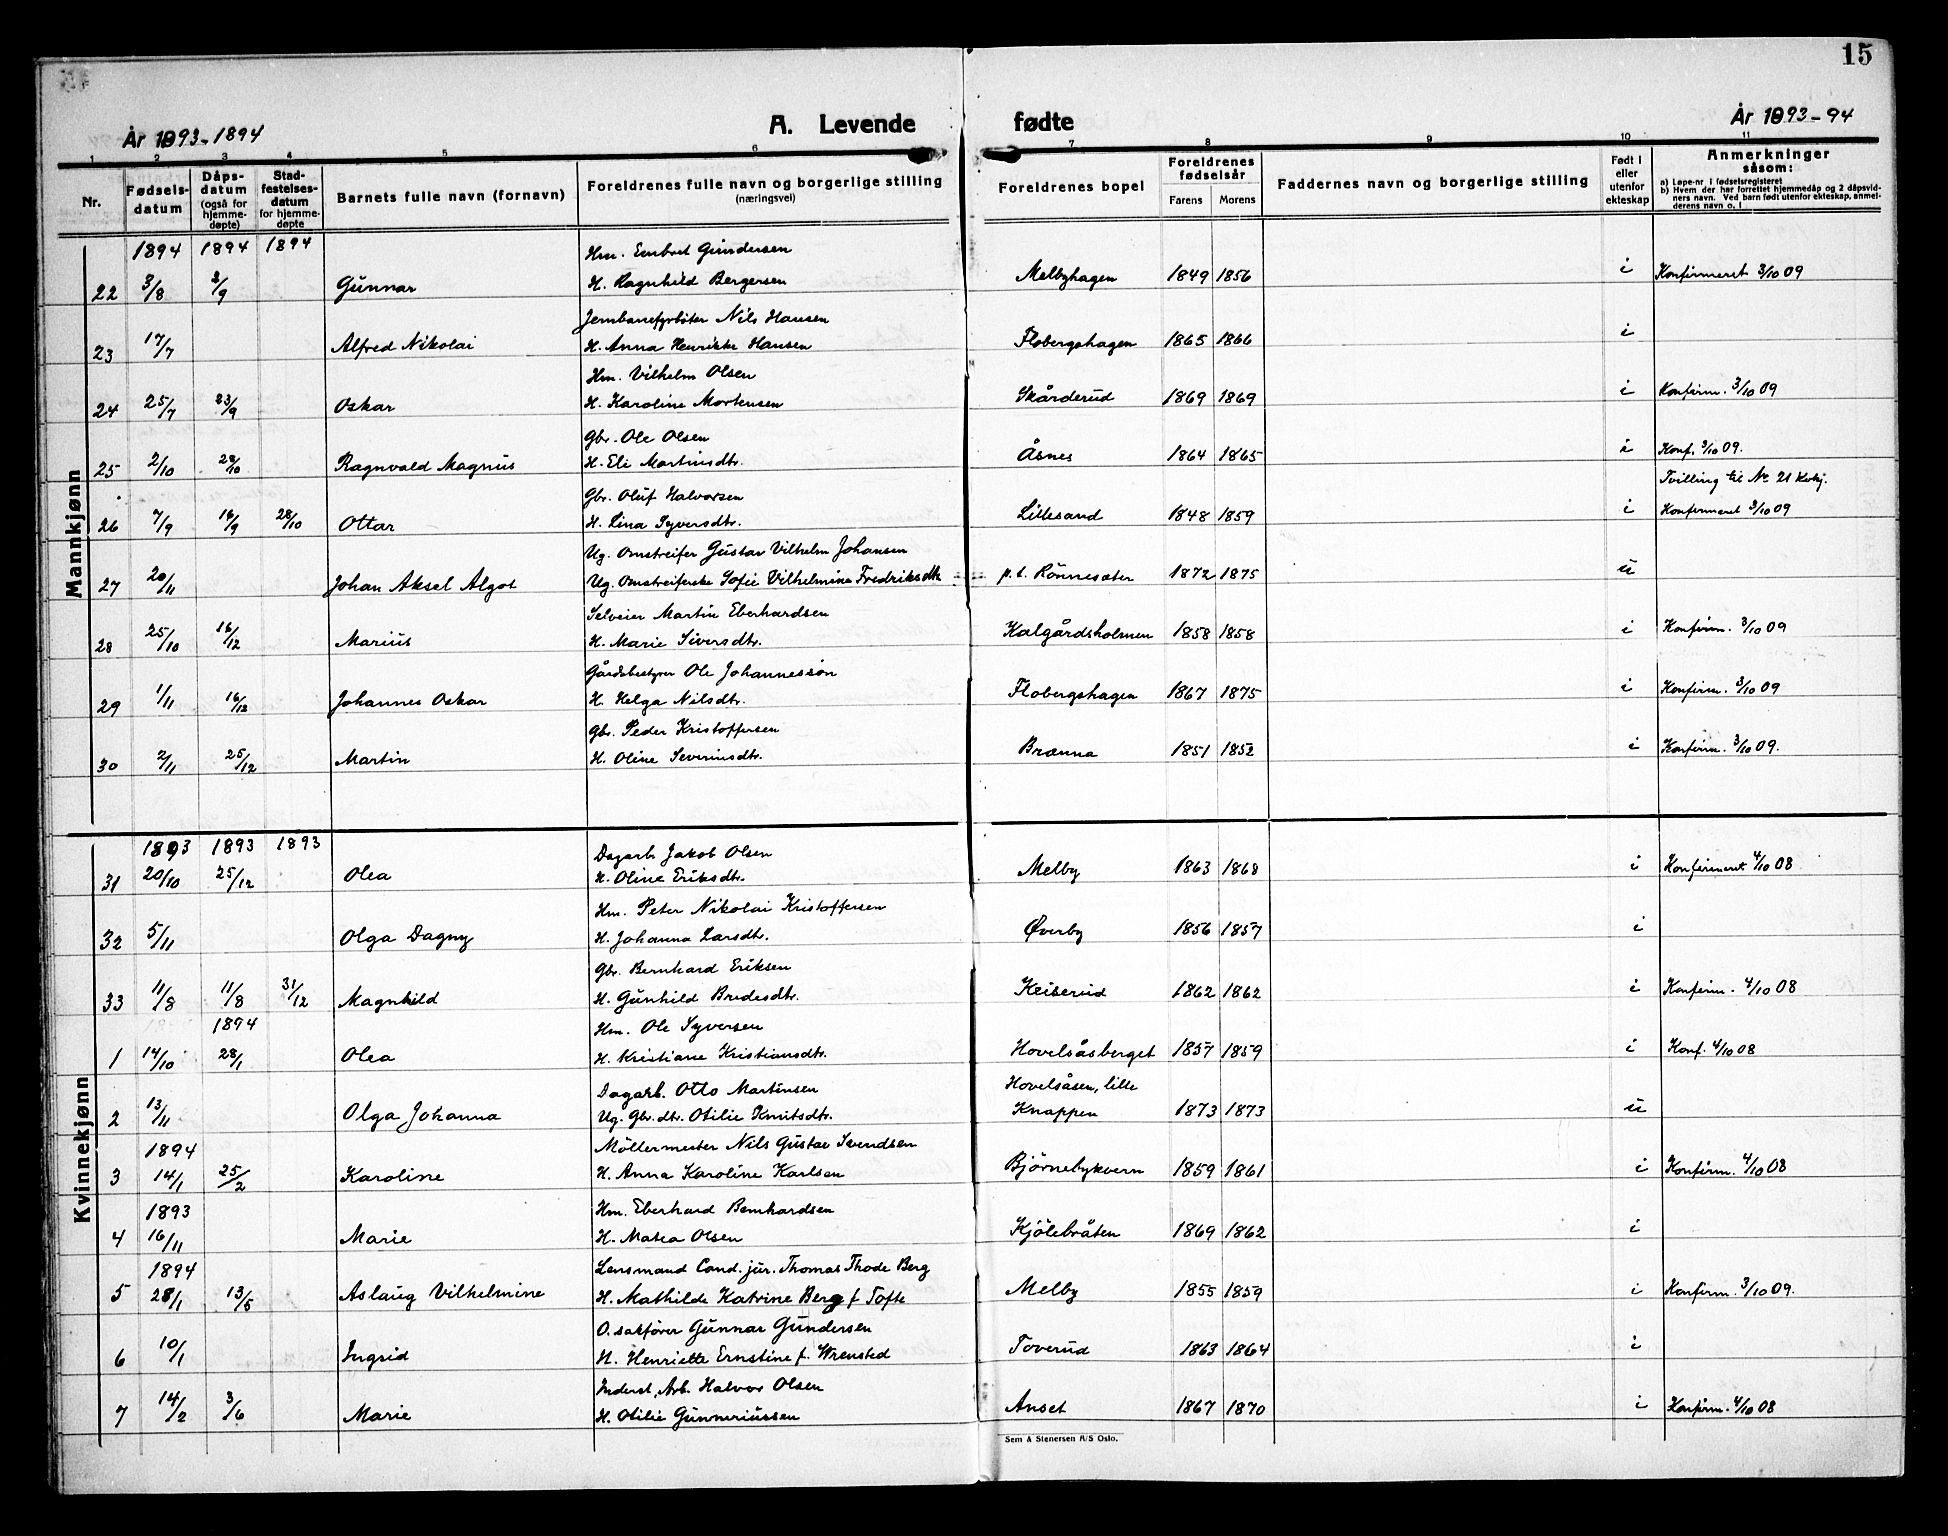 15
År 1893-1894
A. Levende fødte
År 1893-94
1 2 3 4 5 6 7 8 9 10 11
Nr.
Fødsels-datum
Dåps-datum (også for hjemme-døpte)
Stad-festelses-datum for hjemme-døpte
Barnets fulle navn (fornavn)
Foreldrenes fulle navn og borgerlige stilling (næringsvei)
Foreldrenes bopel
Foreldrenes fødselsår
Farens Morens
Faddernes navn og borgerlige stilling
Født i eller utenfor ekteskap
Anmerkninger såsom:
a) Løpe-nr i fødselsregisteret
b) Hvem der har forrettet hjemmedåp og 2 dåpsvid-
ners navn. Ved barn født utenfor ekteskap, anmel-
derens navn o. l
Mannkjønn
1894 1894 1894 Hm. Embret Gundersen
22 3/8 2/9 Gunnar H. Ragnhild Bergersen Melbyhagen 1849 1856 i Konfirmeret 3/10 09
Jernbanefyrbøter Nils Hansen
23 17/7 Alfred Nikolai H. Anna Henrikke Hansen Flobergshagen 1865 1866 i
Hm. Vilhelm Olsen
24 25/7 23/9 Oskar H. Karoline Mortensen Skårderud 1869 1869 i Konfirm. 3/10 09
Gbr. Ole Olsen
25 2/10 28/10 Ragnvald Magnus H. Eli Martinsdtr. Åsnes 1864 1865 i Konf. 3/10 09.
Gbr. Oluf Halvorsen Tvilling til No 21 Kvkj.
26 7/9 16/9 28/10 Ottar H. Lina Syversdtr. Lillesand 1848 1859 i Konfirmeret 3/10 09
Ug. Omstreifer Gustav Vilhelm Johansen
27 20/11 Johan Aksel Algot Ug. Omstreiferske Sofie Vilhelmine Fredriksdtr. p. t. Rønnesæter 1872 1875 u
Selveier Martin Eberhardsen
28 25/10 16/12 Marius H. Marie Siversdtr. Kalgårdsholmen 1858 1858 i Konfirm. 3/10 09
Gårdsbestyrer Ole Johannessøn
29 1/11 16/12 Johannes Oskar H. Helga Nilsdtr. Flobergshagen 1867 1875 i Konfirm. 3/10 09
Gbr. Peder Kristoffersen
30 2/11 25/12 Martin H. Oline Severinsdtr. Brænna 1851 1852 i Konfirm. 3/10 09.
Kvinnekjønn
1893 1893 1893 Dagarb. Jakob Olsen
31 20/10 25/12 Olea H. Oline Eriksdtr. Melby 1863 1868 i Konfirmeret 4/10 08
Hm. Peter Nikolai Kristoffersen
32 5/11 Olga Dagny H. Johanna Larsdtr. Øverby 1856 1857 i
Gbr. Bernhard Eriksen
33 11/8 11/8 31/12 Magnhild H. Gunhild Bredesdtr. Keiserud 1862 1862 i Konfirm. 4/10 08
1894 Hm. Ole Syversen
1 14/10 28/1 Olea H. Kristiane Kristiansdtr. Hovelsåsberget 1857 1859 i Konf. 4/10 08
Dagarb. Otto Martinsen Hovelsåsen, lille
2 13/11 Olga Johanna Ug. Gbr. dtr. Otilie Knutsdtr. Knappen 1873 1873 u
1894 Møllermester Nils Gustav Svendsen
3 14/1 25/2 Karoline H. Anna Karoline Karlsen Bjørnebykvern 1859 1861 i Konfirm. 4/10 08
1893 Hm. Eberhard Bernhardsen
4 16/11 Marie H. Matea Olsen Kjølebråten 1869 1862 i
1894 Lensmand Cand. jur. Thomas Thode Berg
5 28/1 13/5 Aslaug Vilhelmine H. Mathilde Katrine Berg f. Tofte Melby 1855 1859 i Konfirm. 3/10 09.
O. sakfører Gunnar Gundersen
6 10/1 Ingrid H. Henriette Ernstine f. Wrensted Toverud 1863 1864 i
Inderst, Arb. Halvor Olsen
7 14/2 3/6 Marie H. Otilie Gunneriussen Anset 1867 1870 i Konfirm. 4/10 08
Sem & Stenersen A/S Oslo.